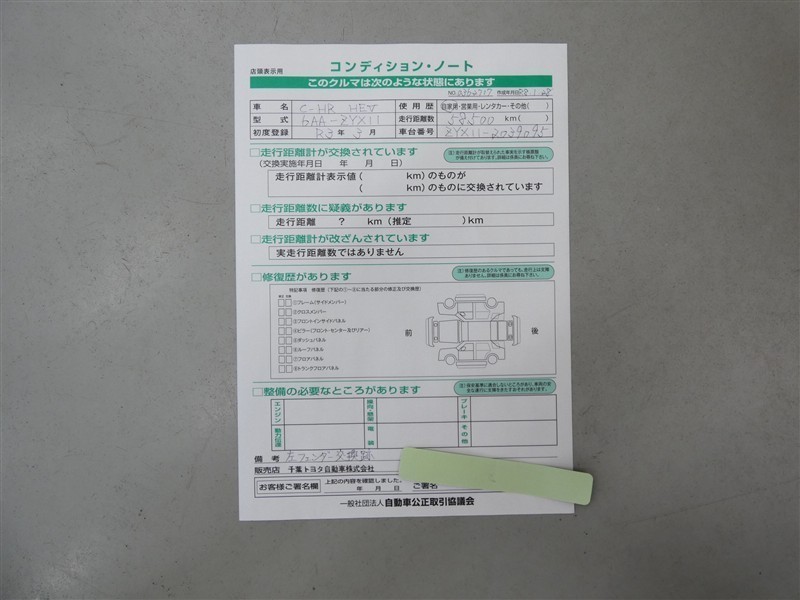 店頭表示用
コンディション・ノート
このクルマは次のような状態にあります
車名 C-HR HEV 使用歴 自家用・営業用・レンタカー・その他( )
型式 6AA-ZYX11 走行距離数 58,500 km( )
初度登録 R3年3月 車台番号 ZYX11-2039095
□走行距離計が交換されています
(交換実施年月日 年 月 日)
走行距離計表示値( km)のものが
( km)のものに交換されています
□走行距離数に疑義があります
走行距離 ? km(推定 )km
□走行距離計が改ざんされています
実走行距離数ではありません
□修復歴があります
特記事項 修復歴(下記の①~⑧に当たる部分の修正及び交換歴)
①フレーム(サイドメンバー)
②クロスメンバー
③フロントインサイドパネル
④ピラー(フロント・センター及びリアー)
⑤ダッシュパネル
⑥ルーフパネル
⑦フロアパネル
⑧トランクフロアパネル
前 後
□整備の必要なところがあります
エンジン
ブレーキ
動力伝達 電装 その他
備考 左フェンダー交換跡
販売店 千葉トヨタ自動車株式会社
お客様ご署名欄 上記の内容を確認しました
年 月 日 ご署名
一般社団法人 自動車公正取引協議会